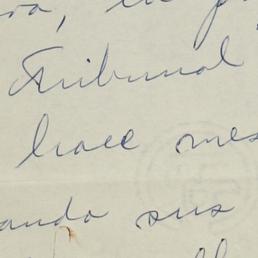 Tribunal
hace mes
ando sus